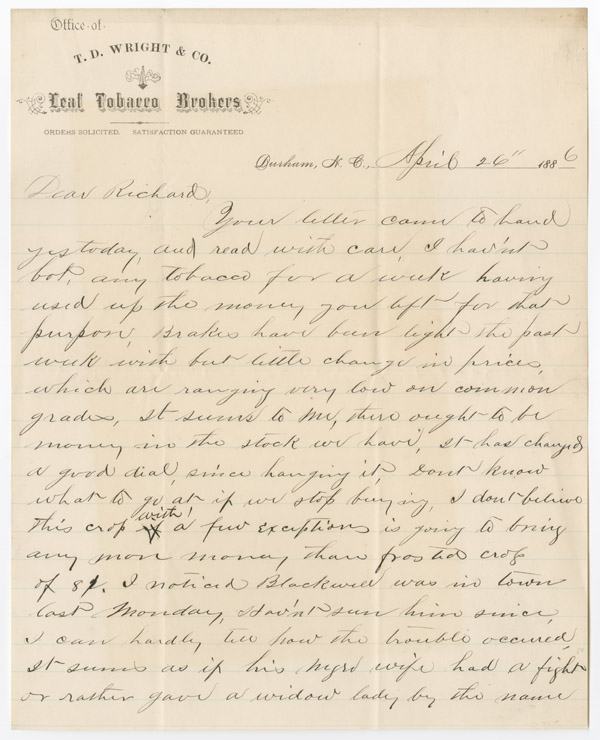 Office of
T. D. WRIGHT & CO.
Leaf Tobacco Brokers
ORDERS SOLICITED. SATISFACTION GUARANTEED
Durham, N. C., April 26" 1886
Dear Richard,
Your letter came to hand
yestoday, and read with care, I hav'nt
bot, any tobacco for a week having
used up the money you left for that
purpon, Brakes have been light the past
week with but little change in prices,
which are ranging very low on common
grades, it seems to me, there ought to be
money in the stock we have, it has changed
a good deal, since hanging it, dont know
what to go at if we stop buying, I dont believe
this crop with a few exceptions is going to bring
any more money than frosted crop
of 81. I noticed Blackwell was in town
last Monday, Hav'nt seen him since,
I can hardly tell how the trouble occured,
it seems as if his negro wife had a fight
or rather gave a widow lady by the name